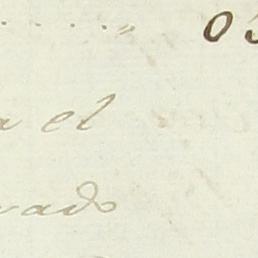 . . . . „ 03
a el
vado